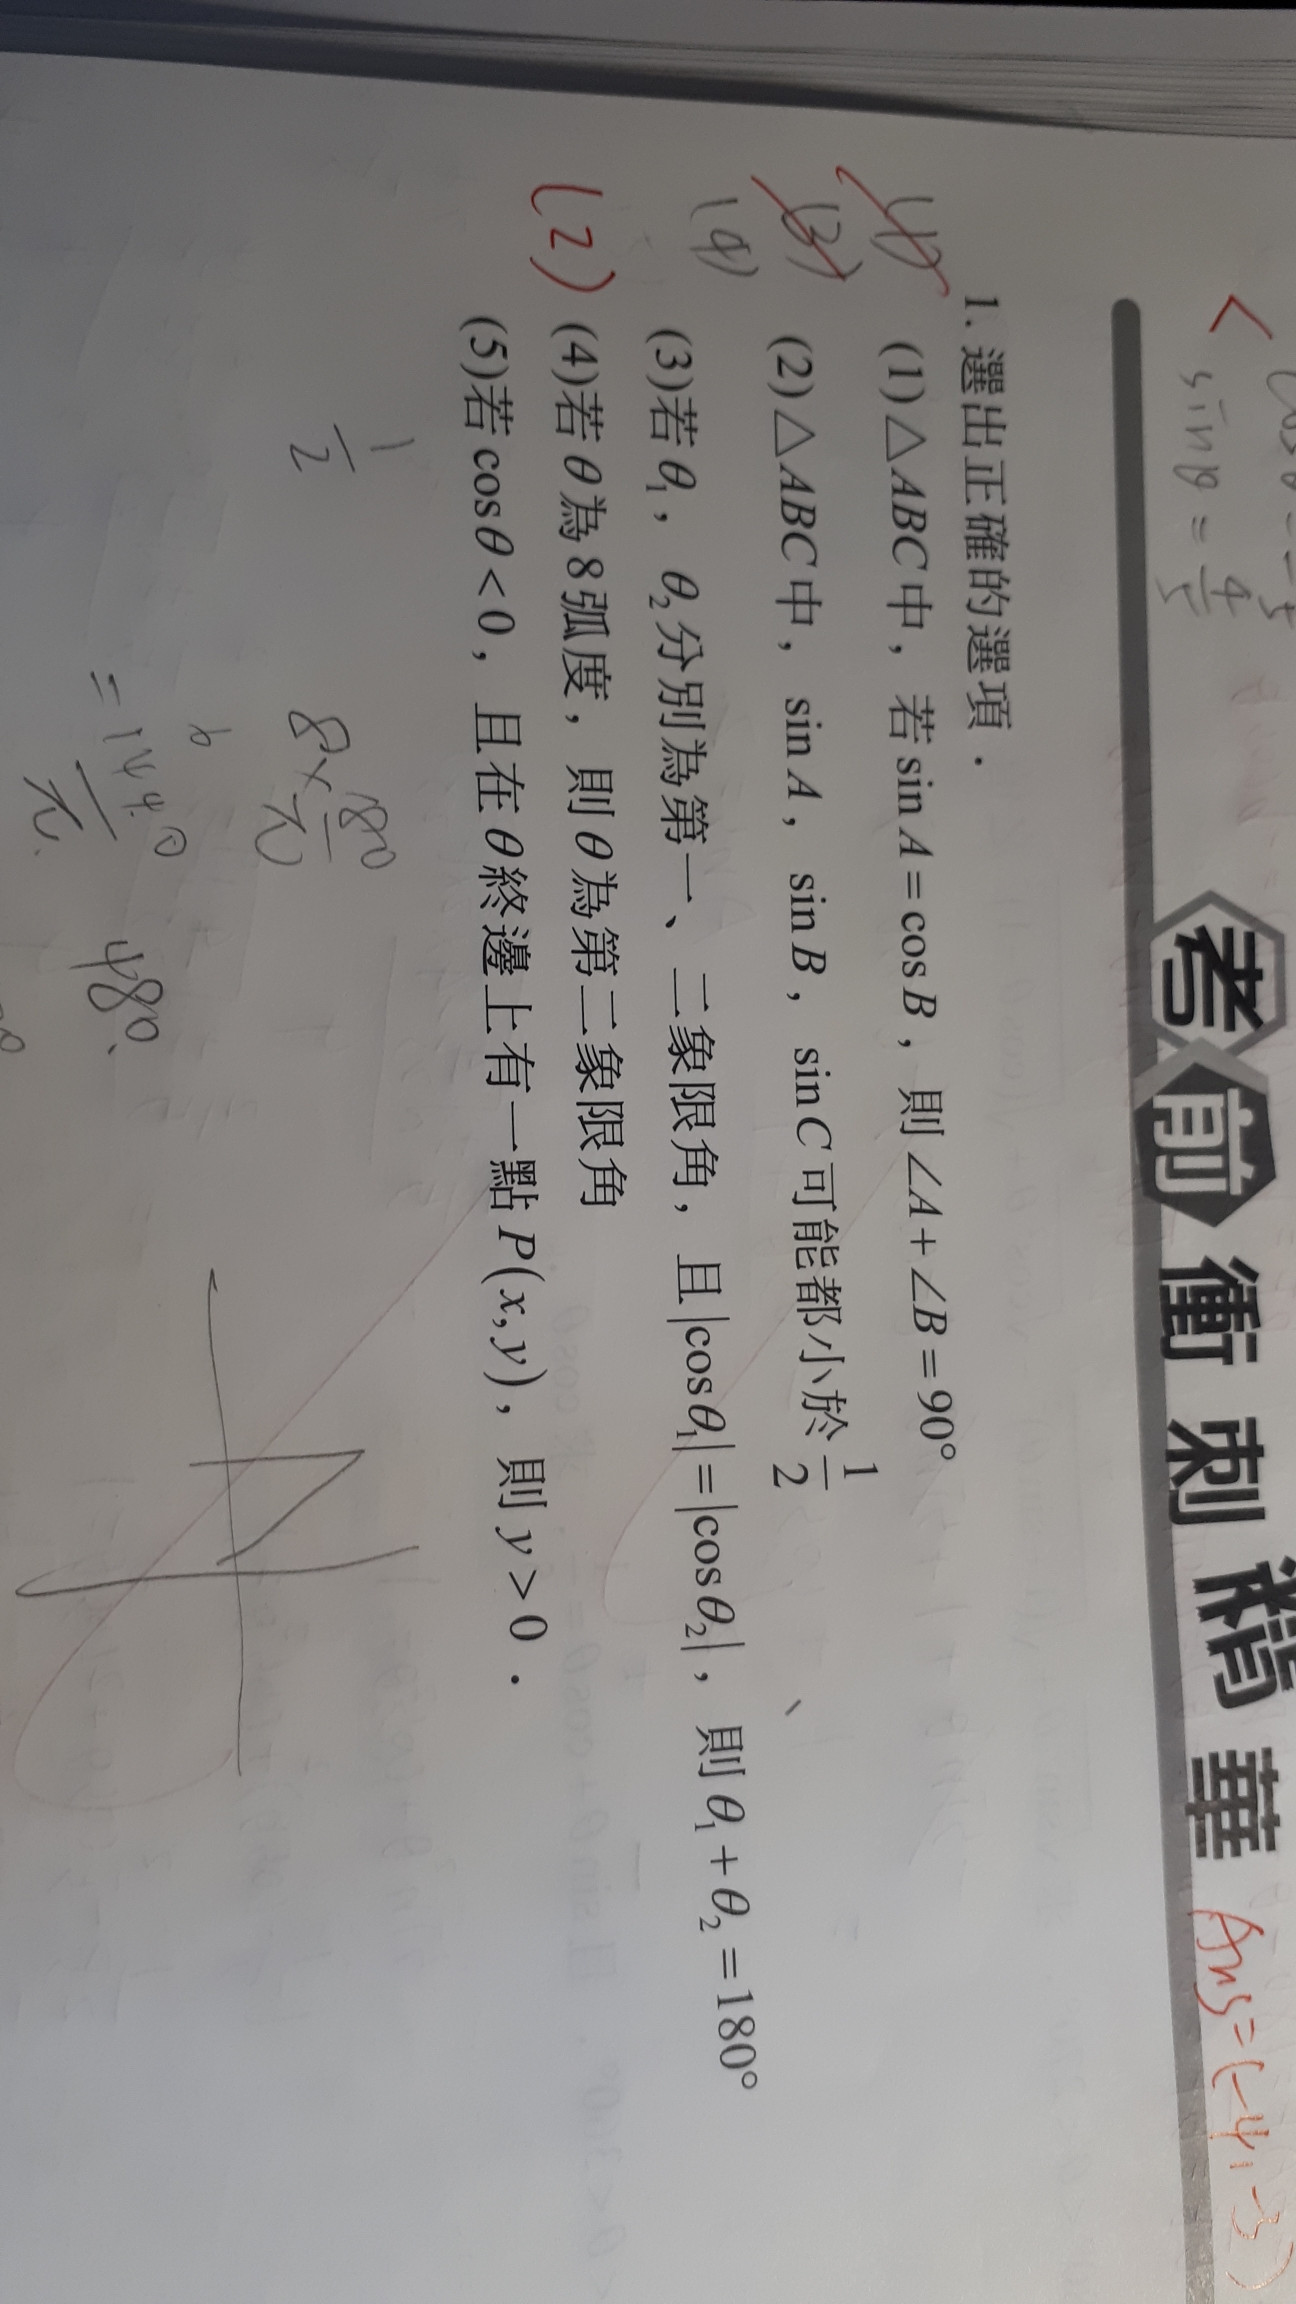 sinθ = 4/5
考前衝刺精華
Ans=(-4,-3)
1. 選出正確的選項．
(1) (1)△ABC中，若 sin A = cos B，則∠A+∠B=90°
(3) (2)△ABC中，sin A，sin B，sin C 可能都小於 1/2
(4) (3)若 θ₁，θ₂ 分別為第一、二象限角，且 |cos θ₁| = |cos θ₂|，則 θ₁ + θ₂ = 180°
(2) (4)若 θ 為 8 弧度，則 θ 為第二象限角
(5)若 cos θ < 0，且在 θ 終邊上有一點 P(x, y)，則 y > 0．
1/2
8 × 180/π
= 1440/π
480